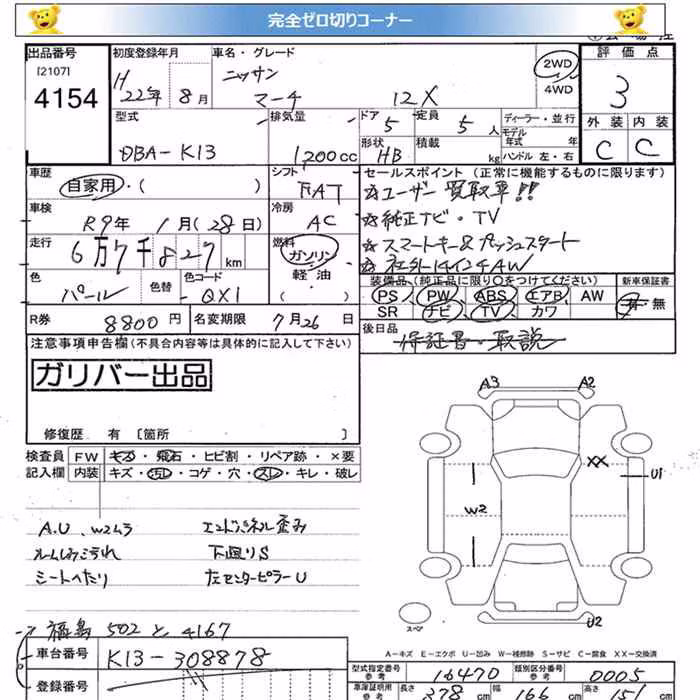 完全ゼロ切りコーナー
出品番号 初度登録年月 車名・グレード 評価点
[2107] H 22年 8月 ニッサン マーチ 12X 2WD 4WD 3
4154
型式 排気量 ドア 定員 ディーラー・並行 外装 内装
DBA-K13 1200cc 5 5人 モデル年式 年 C C
形状 HB 積載 kg ハンドル 左・右
車歴 自家用・( ) シフト FAT セールスポイント (正常に機能するものに限ります)
☆ユーザー買取車!!
車検 R9年 1月(28日) 冷房 AC ☆純正ナビ・TV
走行 6万7千827km 燃料 ガソリン 軽油・( ) ☆スマートキー&プッシュスタート
☆社外14インチAW
色 パール 色替 色コード QX1 装備品 (純正品に限り○をつけてください) 新車保証書
PS PW ABS エアB AW 有・無
SR ナビ TV カワ
R券 8800円 名変期限 7月26日 後日品 保証書・取説
注意事項申告欄(不具合内容等は具体的に記入して下さい)
ガリバー出品
修復歴 有 〔箇所 〕
検査員記入欄 FW キズ・飛石・ヒビ割・リペア跡・×要
内装 キズ・汚レ・コゲ・穴・スレ・キレ・破レ
A.U、W2ムラ エンドパネル歪み
ルームしみ汚れ 下廻りS
シートへたり 左センターピラーU
A3 A2
XX U1
W2
U2
スペア
→福島 502 と 4167
A-キズ E-エクボ U-凹み W-補修跡 S-サビ C-腐食 XX-交換済
車台番号 K13-308878
型式指定番号 参考 16470 類別区分番号 参考 0005
登録番号
車庫証明用 参考 長さ 378cm 幅 166cm 高さ 151cm